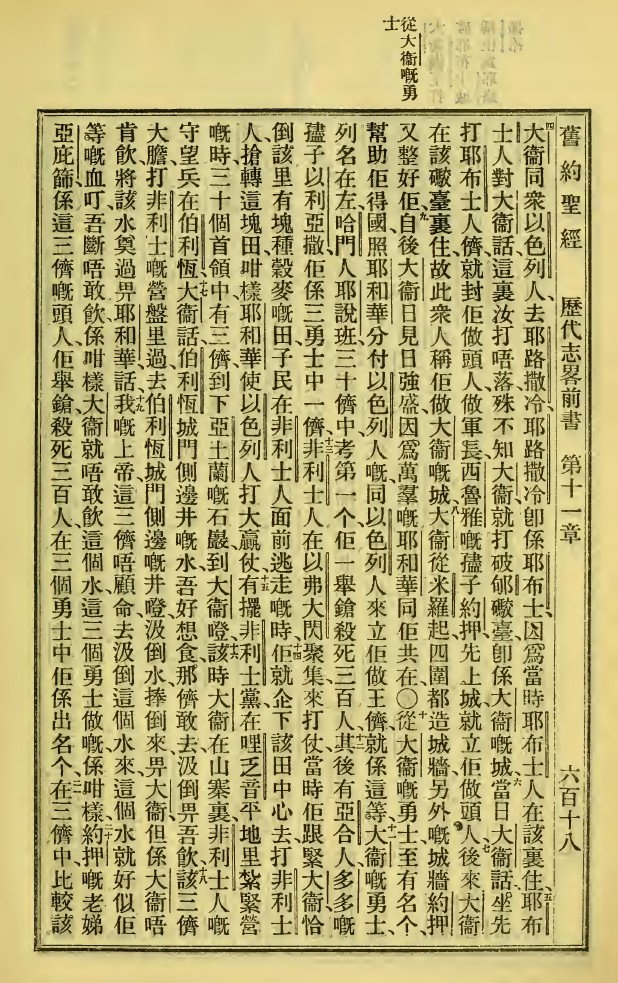 舊約聖經 歷代志畧前書 第十一章 六百十八
從大衞嘅勇士
四大衞同衆以色列人去耶路撒冷、耶路撒冷卽係耶布士、因爲當時耶布士人在該裏住、五耶布
士人對大衞話、這裏汝打唔落、殊不知大衞就打破郇礮臺、卽係大衞嘅城、六當日大衞話、坐先
打耶布士人儕就封佢做頭人、做軍長、西魯雅嘅孻子約押、先上城就立佢做頭人、七後來大衞
在該礮臺裏住、故此衆人稱佢做大衞嘅城、八大衞從米羅起四圍都造城牆、另外嘅城牆、約押
又整好佢、九自後大衞日見日強盛、因爲萬羣嘅耶和華同佢共在、〇十從大衞嘅勇士至有名个、
幫助佢得國、照耶和華分付以色列人嘅、同以色列人來立佢做王儕、就係這等、十一大衞嘅勇士、
列名在左、哈門人耶說班、三十儕中考第一个、佢一舉鎗殺死三百人、十二其後有亞合人多多嘅
孻子以利亞撒、佢係三勇士中一儕、十三非利士人在以弗大閃聚集來打仗、當時佢跟緊大衞、恰
倒該里有塊種穀麥嘅田、子民在非利士人面前逃走嘅時、十四佢就企下該田中心、去打非利士
人、搶轉這塊田、咁樣耶和華使以色列人打大贏仗、十五有擺非利士黨在哩乏音平地里紮緊營
嘅時、三十個首領中有三儕到下亞土蘭嘅石巖、到大衞嶝、十六該時大衞在山寨裏、非利士人嘅
守望兵在伯利恆、十七大衞話、伯利恆城門側邊井嘅水、吾好想食、那儕敢去汲倒畀吾飮、十八該三儕
大膽打非利士嘅營盤里過、去伯利恆城門側邊嘅井嶝、汲倒水、捧倒來畀大衞、但係大衞唔
肯飮、將該水奠過畀耶和華、話、十九我嘅上帝、這三儕唔顧命去汲倒這個水來、這個水就好似佢
等嘅血叮、吾斷唔敢飮、係咁樣大衞就唔敢飮這個水、這三個勇士做嘅係咁樣、二十約押嘅老娣
亞庇篩、係這三儕嘅頭人、佢舉鎗殺死三百人、在三個勇士中佢係出名个、二一在三儕中、比較該